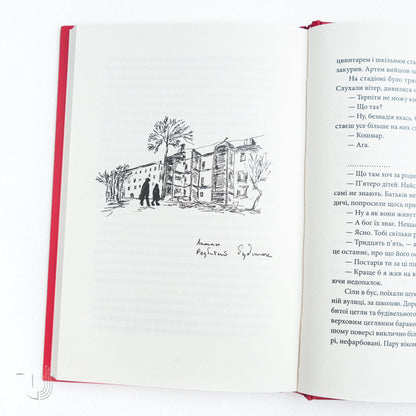 Розбитий будинок
цвинтарем і шкільним ста
закурив. Артем вийшов за
На стадіоні було три
Слухали вітер, дивилися н
— Терпіти не можу кі
— Що так?
— Ну, безнадія якась. С
стаєш усе більше на них с
— Кошмар.
— Ага.
— Що там хоч за роди
— П'ятеро дітей. Найс
самі не знають. Батьків не
дичі, попросили щось при
— Ну а як вони живут
— А бог їх знає. Нещас
— Ясно. Тобі скільки р
— Тридцять п'ять,
це останнє, про що його ос
— Постарів ти за ці пі
— Краще б я жив на
ючи недопалок.
Сіли в бус, поїхали шук
ній вулиці, за школою. Доро
битої цегли та будівельного
верховим цегляним барако
шому поверсі виключно біл
ні, нефарбовані. Пару вікон